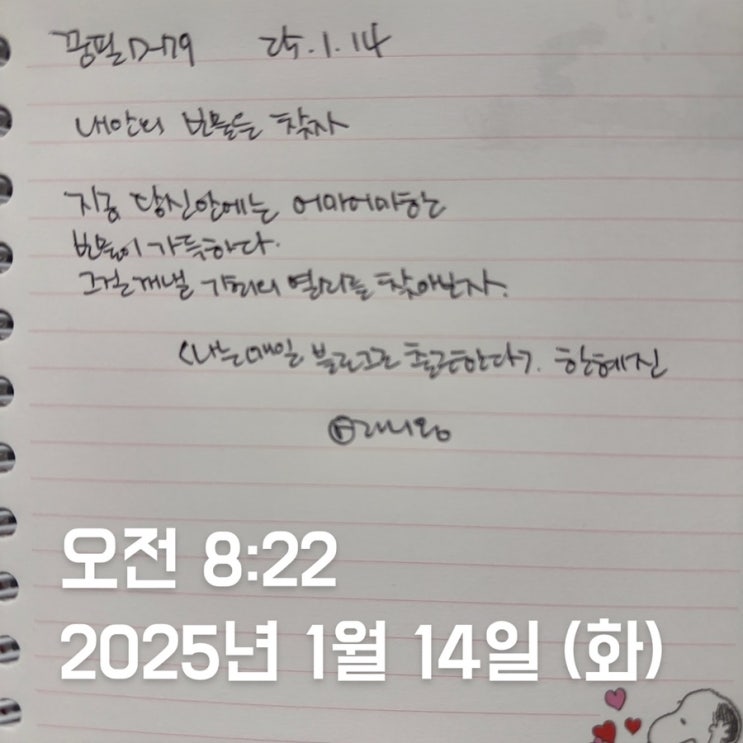 꿈필D-79 25.1.14
내안의 보물을 찾자
지금 당신안에는 어마어마한
보물이 가득하다.
그걸 꺼낼 기회의 열쇠를 찾아보자.
<나는 매일 블로그로 출근한다>. 한혜진
오전 8:22
2025년 1월 14일 (화)